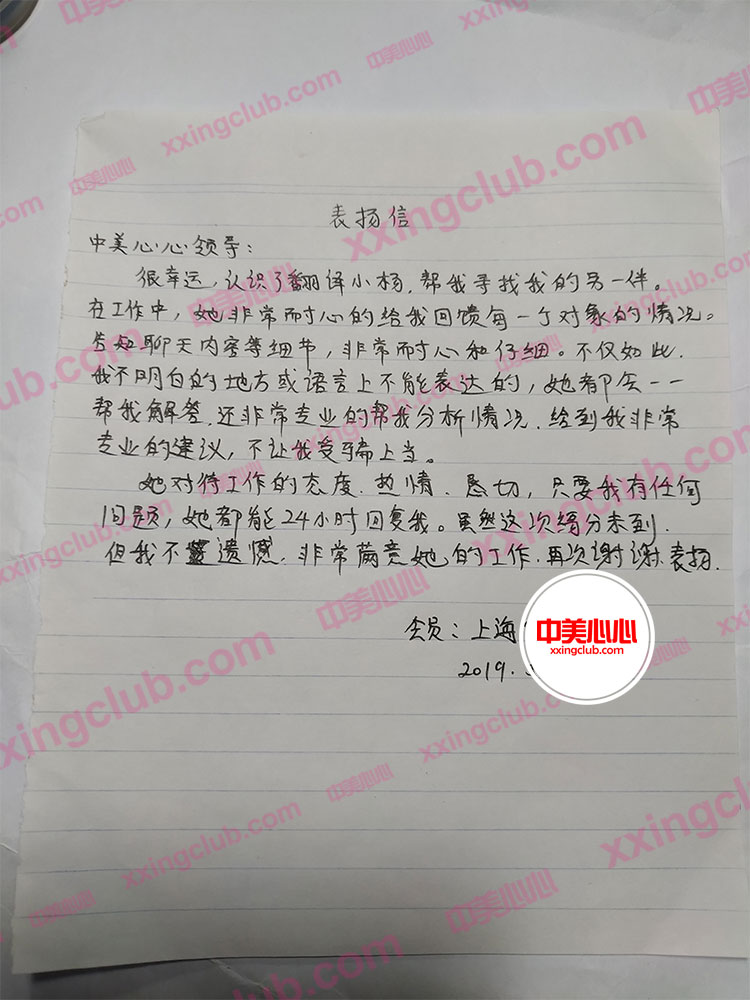 表扬信
中美心心领导：
很幸运，认识了翻译小杨，帮我寻找我的另一伴。
在工作中，她非常耐心的给我回馈每一个对象的情况。
告知聊天内容等细节，非常耐心和仔细。不仅如此.
我不明白的地方或语言上不能表达的，她都会一一
帮我解答.还非常专业的帮我分析情况.给到我非常
专业的建议，不让我受骗上当。
她对待工作的态度.热情.恳切，只要我有任何
问题，她都能24小时回复我。虽然这次缘分未到.
但我不遗憾.非常满意她的工作.再次谢谢.表扬.
会员：上海
2019.
中美心心
xxingclub.com